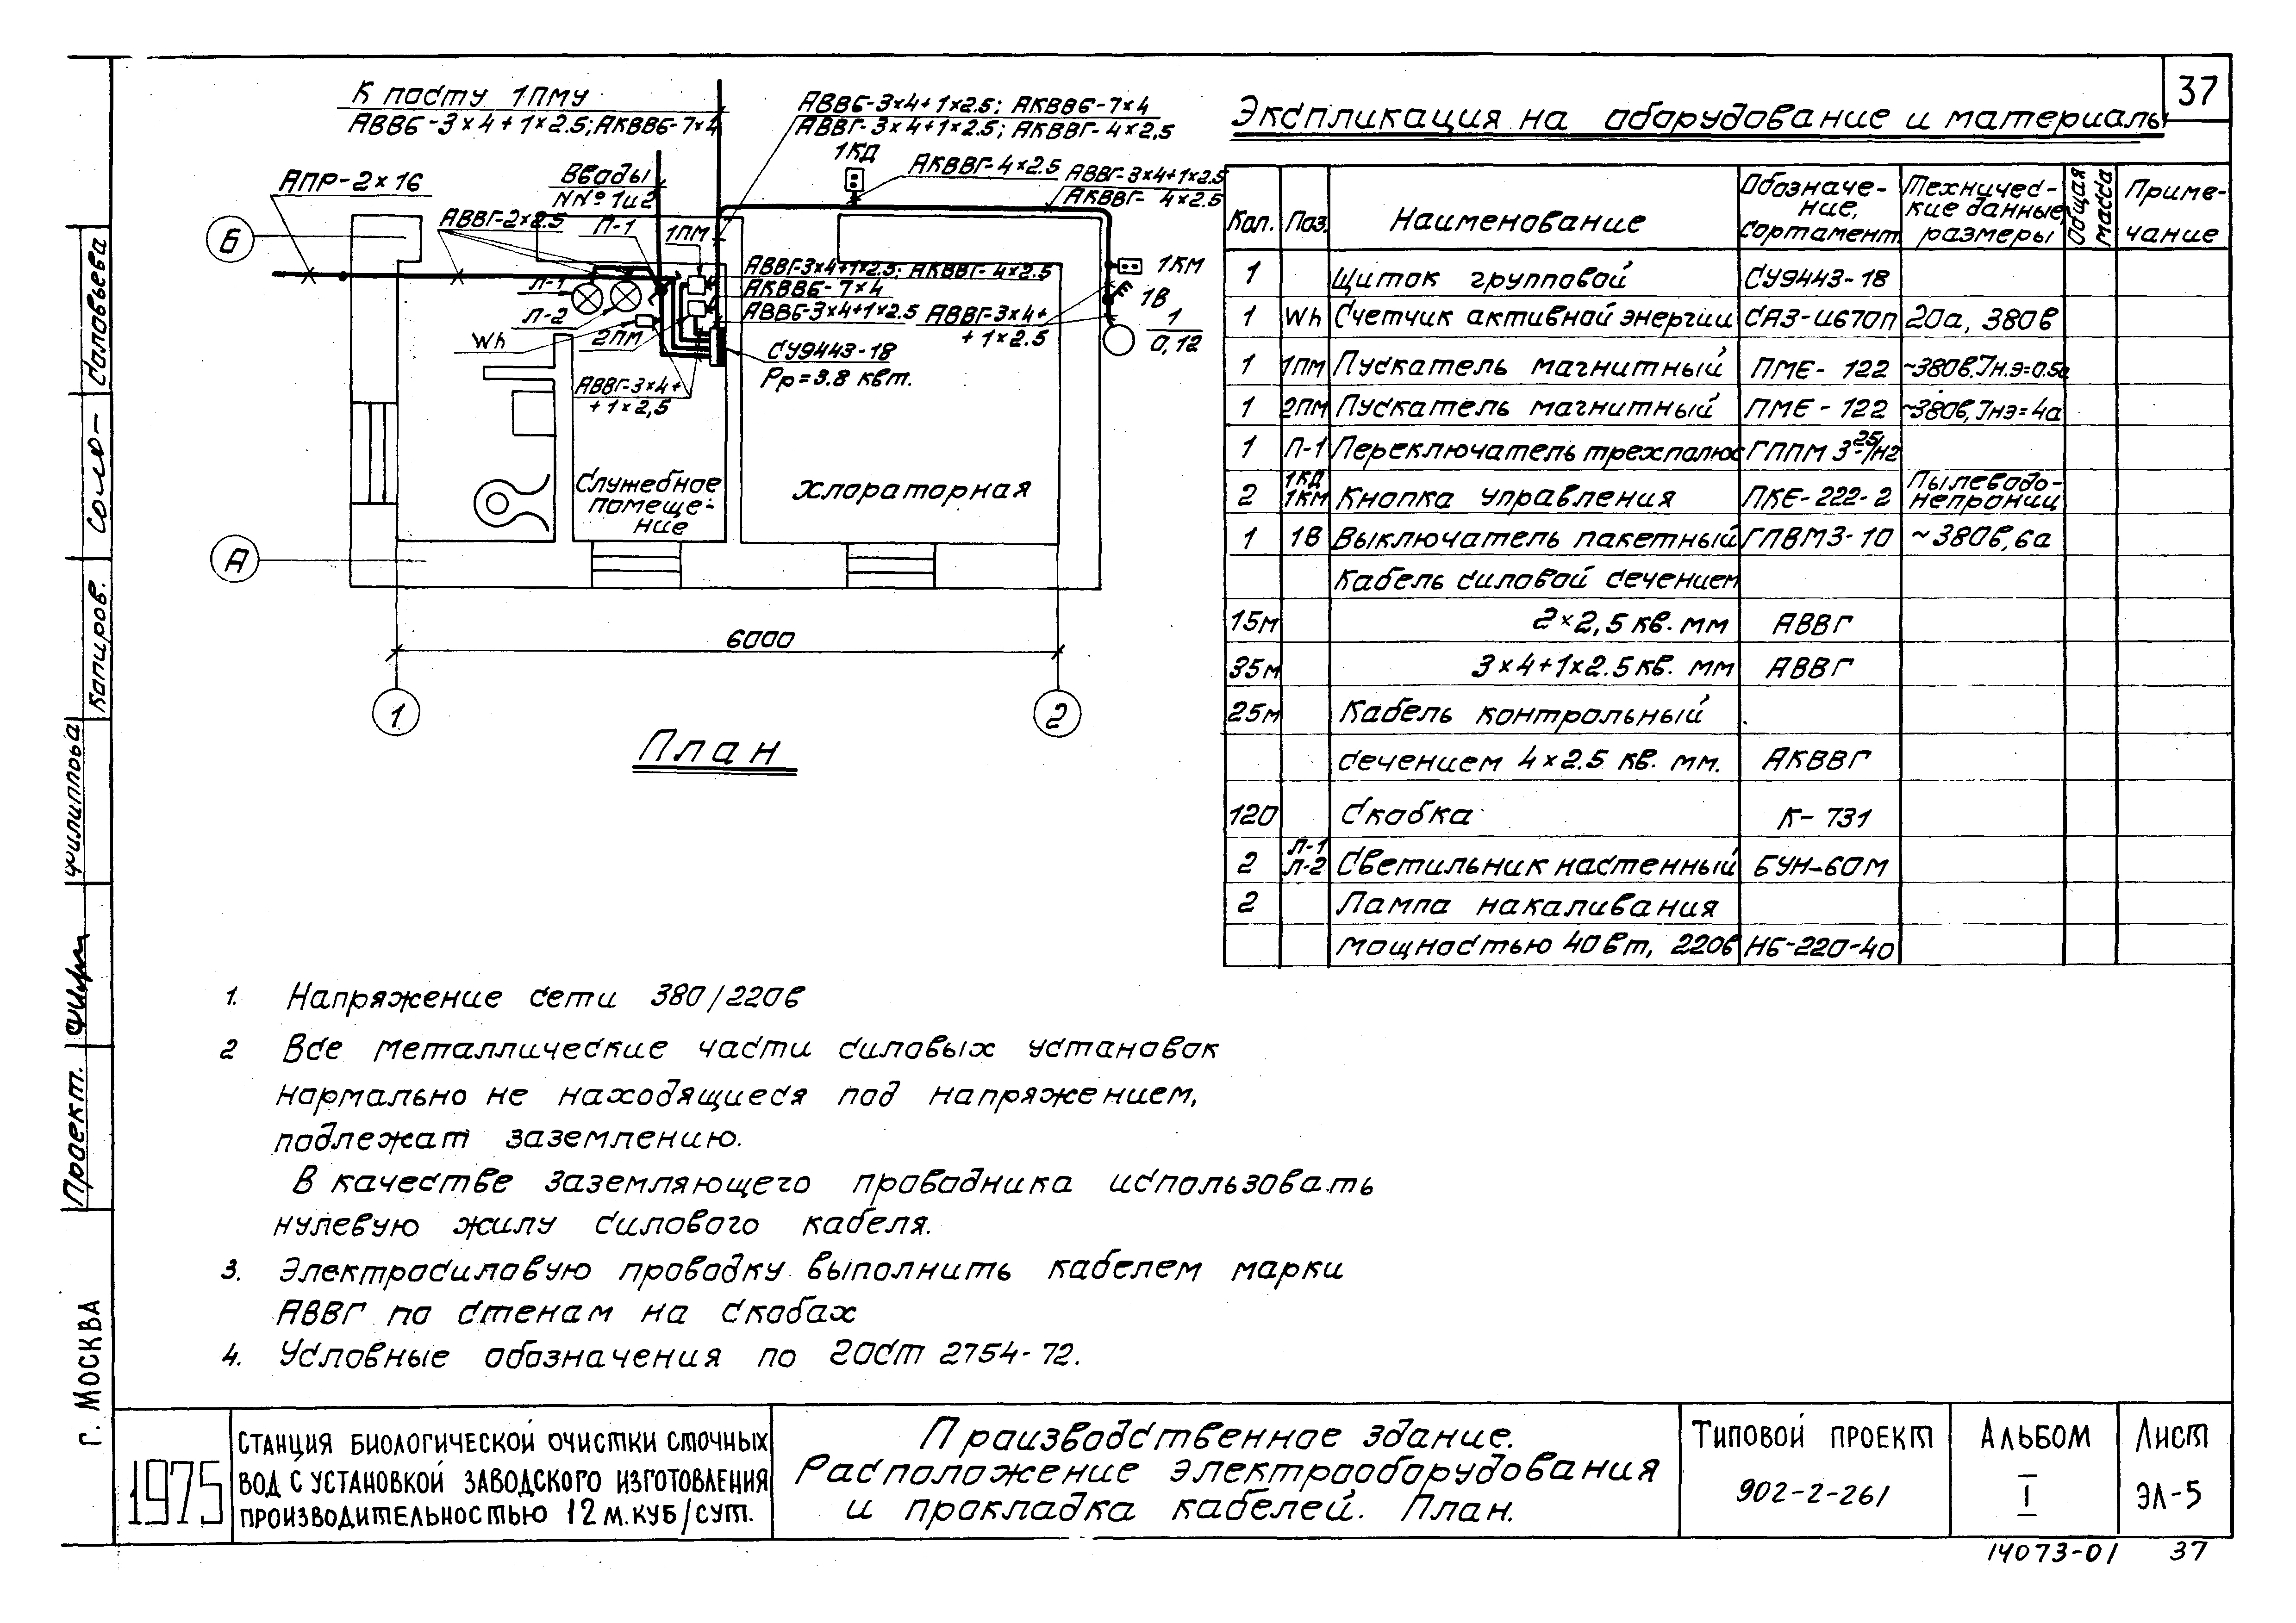 37
К посту 1ПМУ
АВВБ-3×4+1×2.5; АКВВБ-7×4
АВВБ-3×4+1×2.5; АКВВБ-7×4
АВВГ-3×4+1×2.5; АКВВГ-4×2,5
1КД
АКВВГ-4×2.5
АВВГ-3×4+1×2.5
АКВВГ- 4×2.5
АПР-2×16
Вводы
NN° 1и2
АВВГ-2×2.5
П-1
1ПМ
Б
АВВГ-3×4+1×2.5; АКВВГ-4×2.5
АКВВБ-7×4
АВВБ-3×4+1×2.5
АВВГ-3×4+
+1×2.5
1КМ
1В
1
0,12
Л-1
Л-2
Wh
2ПМ
СУ9443-18
Рр=3.8 квт.
АВВГ-3×4+
+1×2,5
Служебное
помеще-
ние
Хлораторная
А
6000
1
2
План
Экспликация на оборудование и материалы
Кол.
Поз.
Наименование
Обозначе-
ние,
сортамент
Техничес-
кие данные,
размеры
Общая
масса
Приме-
чание
1 Щиток групповой СУ9443-18
1 Wh Счетчик активной энергии СА3-И670П 20а, 380в
1 1ПМ Пускатель магнитный ПМЕ-122 ~380в, Iн.э=0.5а
1 2ПМ Пускатель магнитный ПМЕ-122 ~380в, Iнэ=4а
1 П-1 Переключатель трехполюс ГППМ 3-25/Н2
2 1КД 1КМ Кнопка управления ПКЕ-222-2 Пылеводо-
непрониц
1 1В Выключатель пакетный ГПВМ3-10 ~380в, 6а
Кабель силовой сечением
15м 2×2,5 кв. мм АВВГ
35м 3×4+1×2.5 кв. мм АВВГ
25м Кабель контрольный
сечением 4×2.5 кв. мм. АКВВГ
120 Скобка К-731
2 Л-1 Л-2 Светильник настенный БУН-60М
2 Лампа накаливания
мощностью 40вт, 220в НБ-220-40
1. Напряжение сети 380/220в
2 Все металлические части силовых установок
нормально не находящиеся под напряжением,
подлежат заземлению.
В качестве заземляющего проводника использовать
нулевую жилу силового кабеля.
3. Электросиловую проводку выполнить кабелем марки
АВВГ по стенам на скобах
4. Условные обозначения по ГОСТ 2754-72.
Соловьева
Копиров.
Филиппова
Проект.
г. Москва
1975
Станция биологической очистки сточных
вод с установкой заводского изготовления
производительностью 12 м.куб/сут.
Производственное здание.
Расположение электрооборудования
и прокладка кабелей. План.
Типовой проект
902-2-261
Альбом
I
Лист
ЭЛ-5
14073-01 37